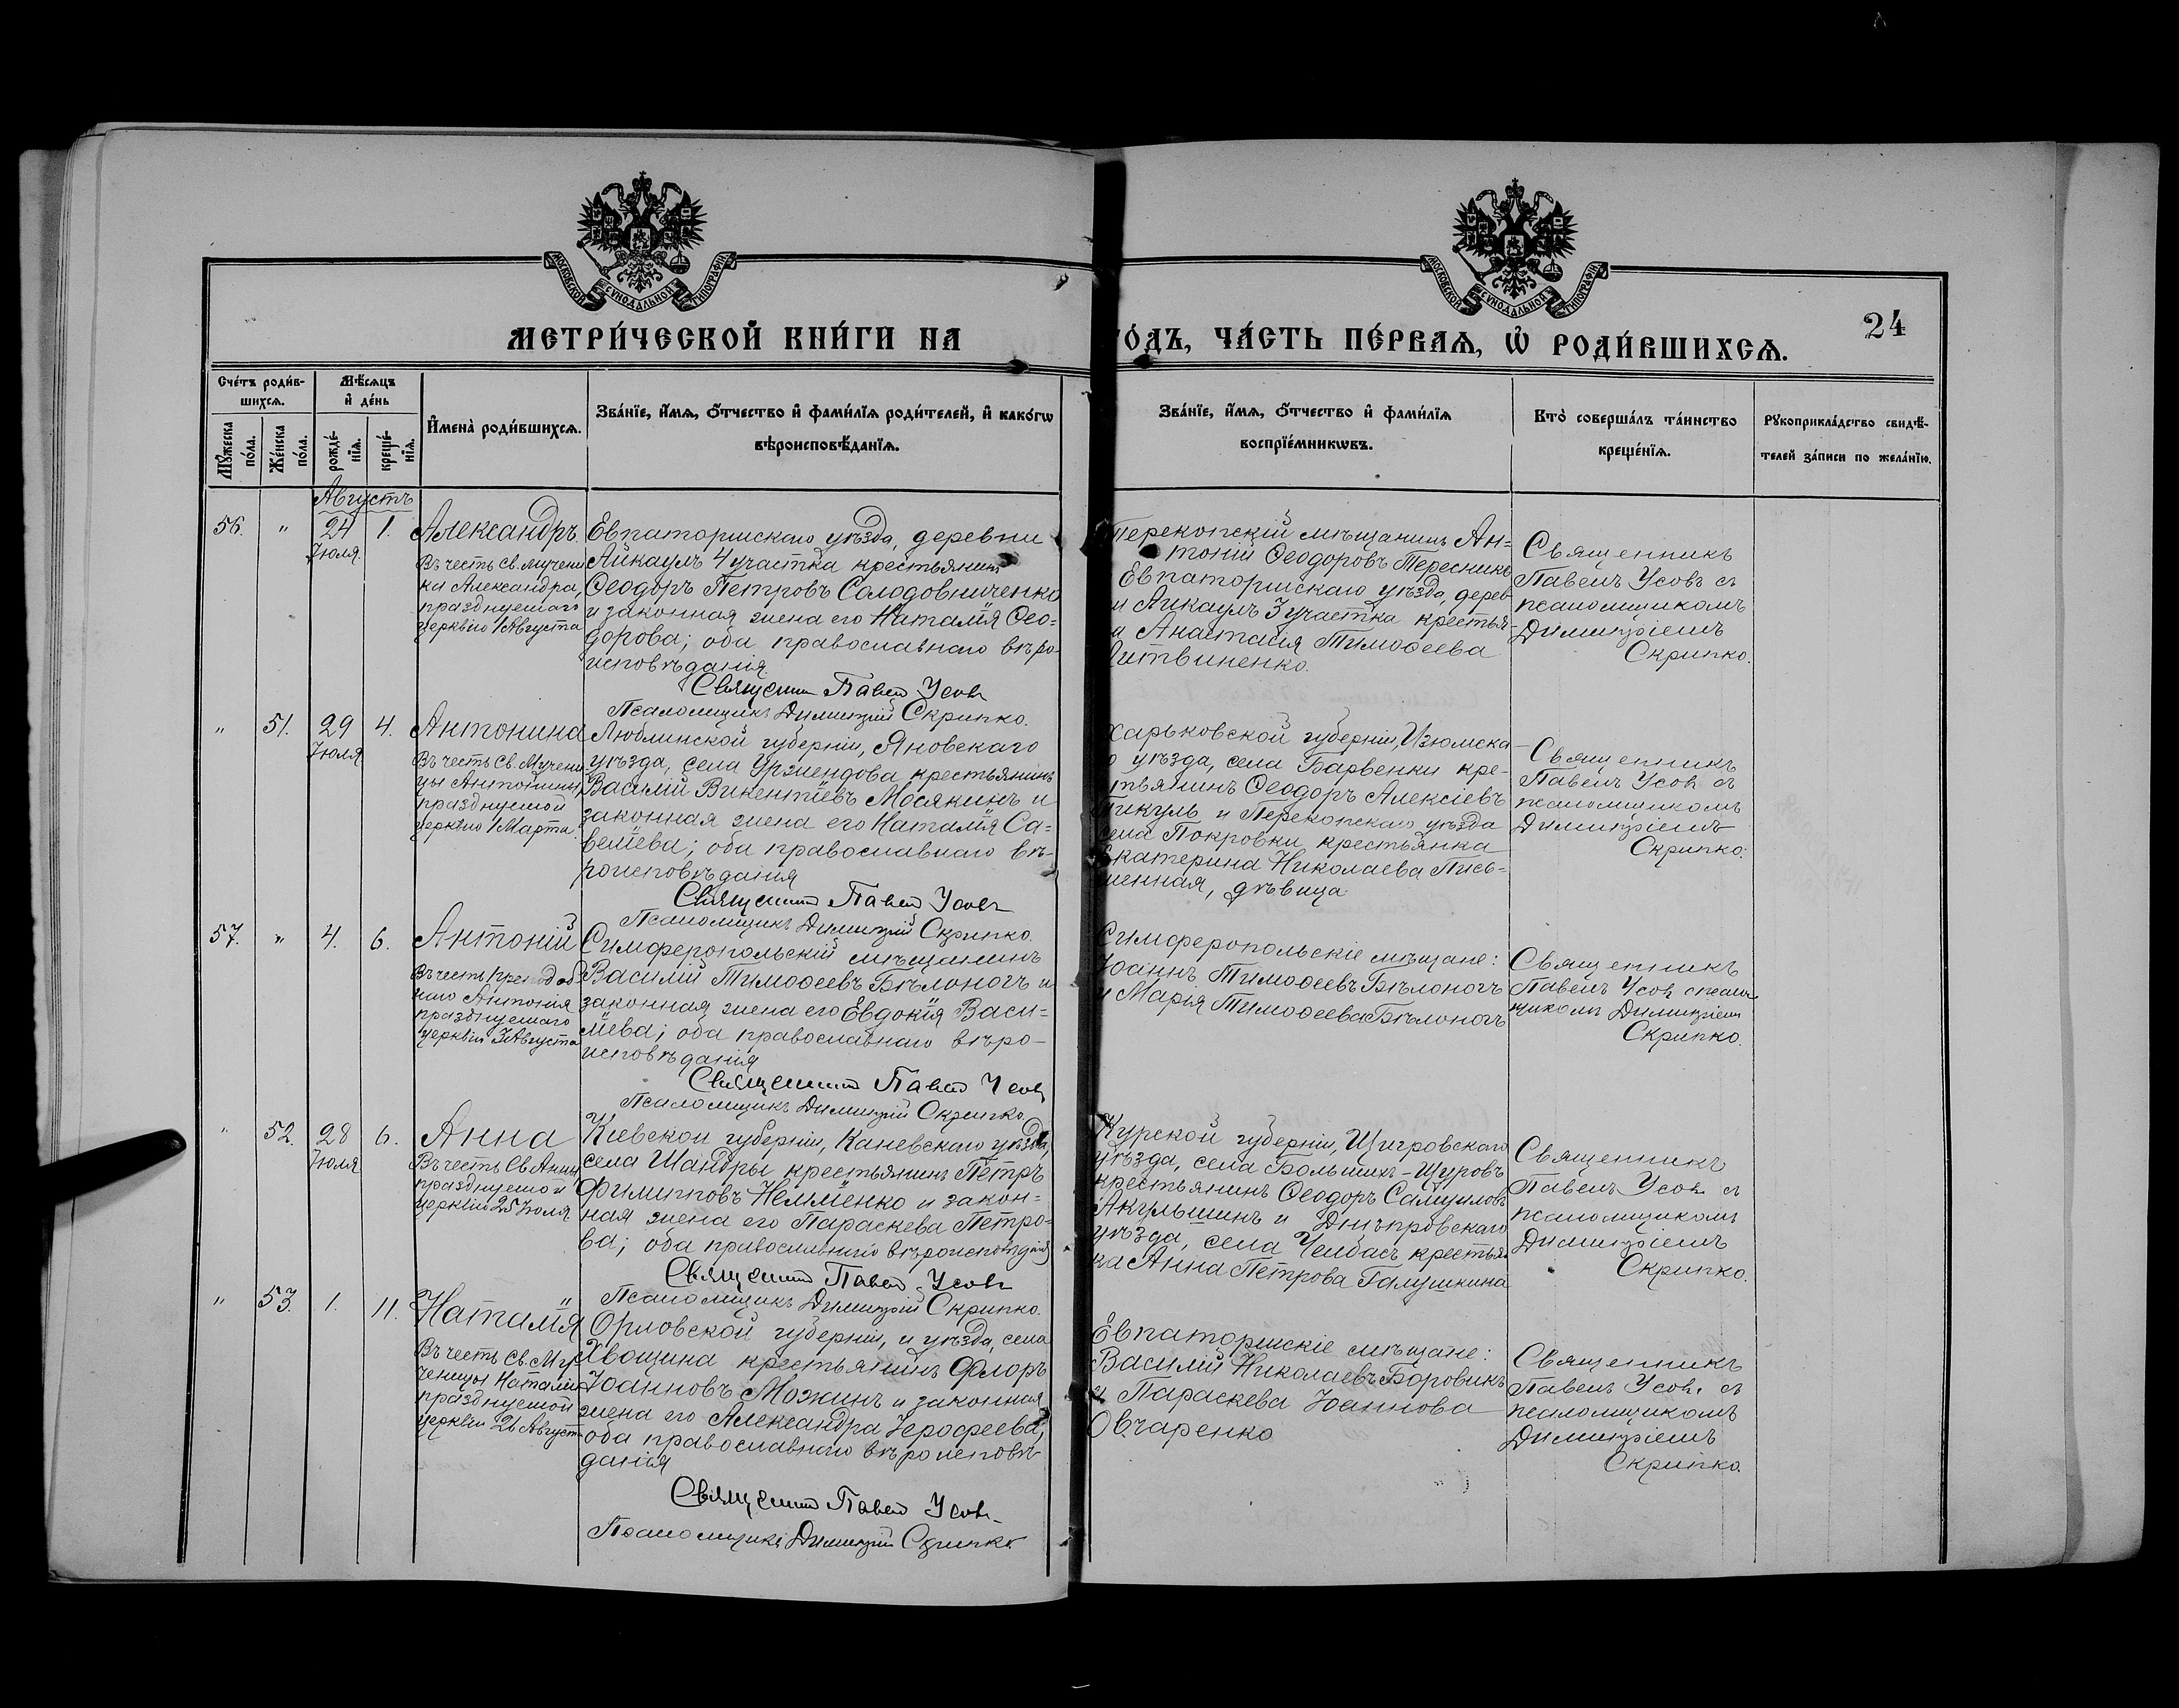 МОСКОВСКОЙ СѴНОДАЛЬНОЙ ТИПОГРАФІИ
МОСКОВСКОЙ СѴНОДАЛЬНОЙ ТИПОГРАФІИ
МЕТРИ́ЧЕСКОЙ КНИ́ГИ НА
ГО́ДЪ, ЧА́СТЬ ПЕ́РВАѦ, Ѿ РОДИ́ВШИХСѦ.
24
Сче́тъ роди́в-
шихсѧ.
Мѣ́сѧцъ
и҆ де́нь
Мꙋ́жеска
по́ла.
Же́нска
по́ла.
рожде́-
нїѧ.
креще́-
нїѧ.
И҆мена̀ роди́вшихсѧ.
Зва́нїе, и҆́мѧ, ѻ҆́тчество и҆ фами́лїѧ роди́телей, и҆ како́гѡ
вѣроисповѣ́данїѧ.
Зва́нїе, и҆́мѧ, ѻ҆́тчество и҆ фами́лїѧ
воспрїе́мникѡвъ.
Кто̀ соверша́лъ та́инство
креще́нїѧ.
Рꙋкоприкла́дство свидѣ́-
телей за́писи по жела́нїю.
Августъ
56. " 24 1.
Іюля
Александръ
Въ честь св. мучени
ка Александра,
празднуемаго
церквію 1 Августа
Евпаторійскаго уѣзда, деревни
Айкаулъ 4 участка крестьянинъ
Ѳеодоръ Петровъ Солодовниченко
и законная жена его Наталія Ѳео=
дорова; оба православнаго вѣро-
исповѣданія
Священникъ Павелъ Усовъ
Псаломщикъ Димитрій Скрипко.
Перекопскій мѣщанинъ Ан=
тоній Ѳеодоровъ Пересникъ
Евпаторійскаго уѣзда, дерев
и Аикаулъ 3 участка крестья-
а Анастасія Тимоѳеева
Литвиненко.
Священникъ
Павелъ Усовъ съ
псаломщикомъ
Димитріемъ
Скрипко.
" 51. 29 4.
Іюля
Антонина
Въ честь Св. Мучени
цы Антонины,
празднуемой
церквію 1 Марта.
Люблинской губерніи, Яновскаго
уѣзда, села Уржендова крестьянинъ
Василій Викентіевъ Мосякинъ и
законная жена его Наталія Са=
веліева; оба православнаго вѣ-
роисповѣданія
Священникъ Павелъ Усовъ
Псаломщикъ Димитрій Скрипко.
Харьковской губерніи, Изюмска-
о уѣзда, села Барвенки кре-
тьянинъ Ѳеодоръ Алексіевъ
Пикуль и Перекопскаго уѣзда
села Покровки крестьянка
Екатерина Николаева Пись-
менная, дѣвица.
Священникъ
Павелъ Усовъ съ
псаломщикомъ
Димитріемъ
Скрипко.
57. " 4. 6.
Антоній
Въ честь преподоб
наго Антонія
празднуемаго
церквію 3 Августа
Симферопольскій мѣщанинъ
Василій Тимоѳеевъ Бѣлоногъ и
законная жена его Евдокія Васи=
ліева; оба православнаго вѣро-
исповѣданія
Священникъ Павелъ Усовъ
Псаломщикъ Димитрій Скрипко.
Симферопольскіе мѣщане:
Іоаннъ Тимоѳеевъ Бѣлоногъ
и Марья Тимоѳеева Бѣлоногъ
Священникъ
Павелъ Усовъ с псалом
щикомъ Димитріемъ
Скрипко.
" 52. 28 6.
Іюля
Анна
Въ честь Св. Анны
празднуемой
церквію 25 Іюля
Кіевской губерніи, Каневскаго уѣзда,
села Шандры крестьянинъ Петръ
Филипповъ Неліпенко и закон=
ная жена его Параскева Петро-
ва; оба православнаго вѣроисповѣданія
Священникъ Павелъ Усовъ
Псаломщикъ Димитрій Скрипко.
Курской губерніи, Щигровскаго
уѣзда, села Большихъ-Щуровъ
крестьянинъ Ѳеодоръ Самуиловъ
Акульшинъ и Днѣпровскаго
уѣзда, села Челбасъ крестьян
ка Анна Петрова Галушкина
Священникъ
Павелъ Усовъ съ
псаломщикомъ
Димитріемъ
Скрипко.
" 53. 1. 11.
Наталія
Въ честь Св. Му
ченицы Наталіи
празднуемой
церквіи 26 Августа
Орловской губерніи, и уѣзда, села
Хвощина крестьянинъ Флоръ
Іоанновъ Можинъ и законная
жена его Александра Іерофеева,
оба православнаго вѣроисповѣ
данія
Священникъ Павелъ Усовъ
Псаломщикъ Димитрій Скрипко
Евпаторійскіе мѣщане:
Василій Николаевъ Боровикъ
и Параскева Іоаннова
Овчаренко
Священникъ
Павелъ Усовъ съ
псаломщикомъ
Димитріемъ
Скрипко.